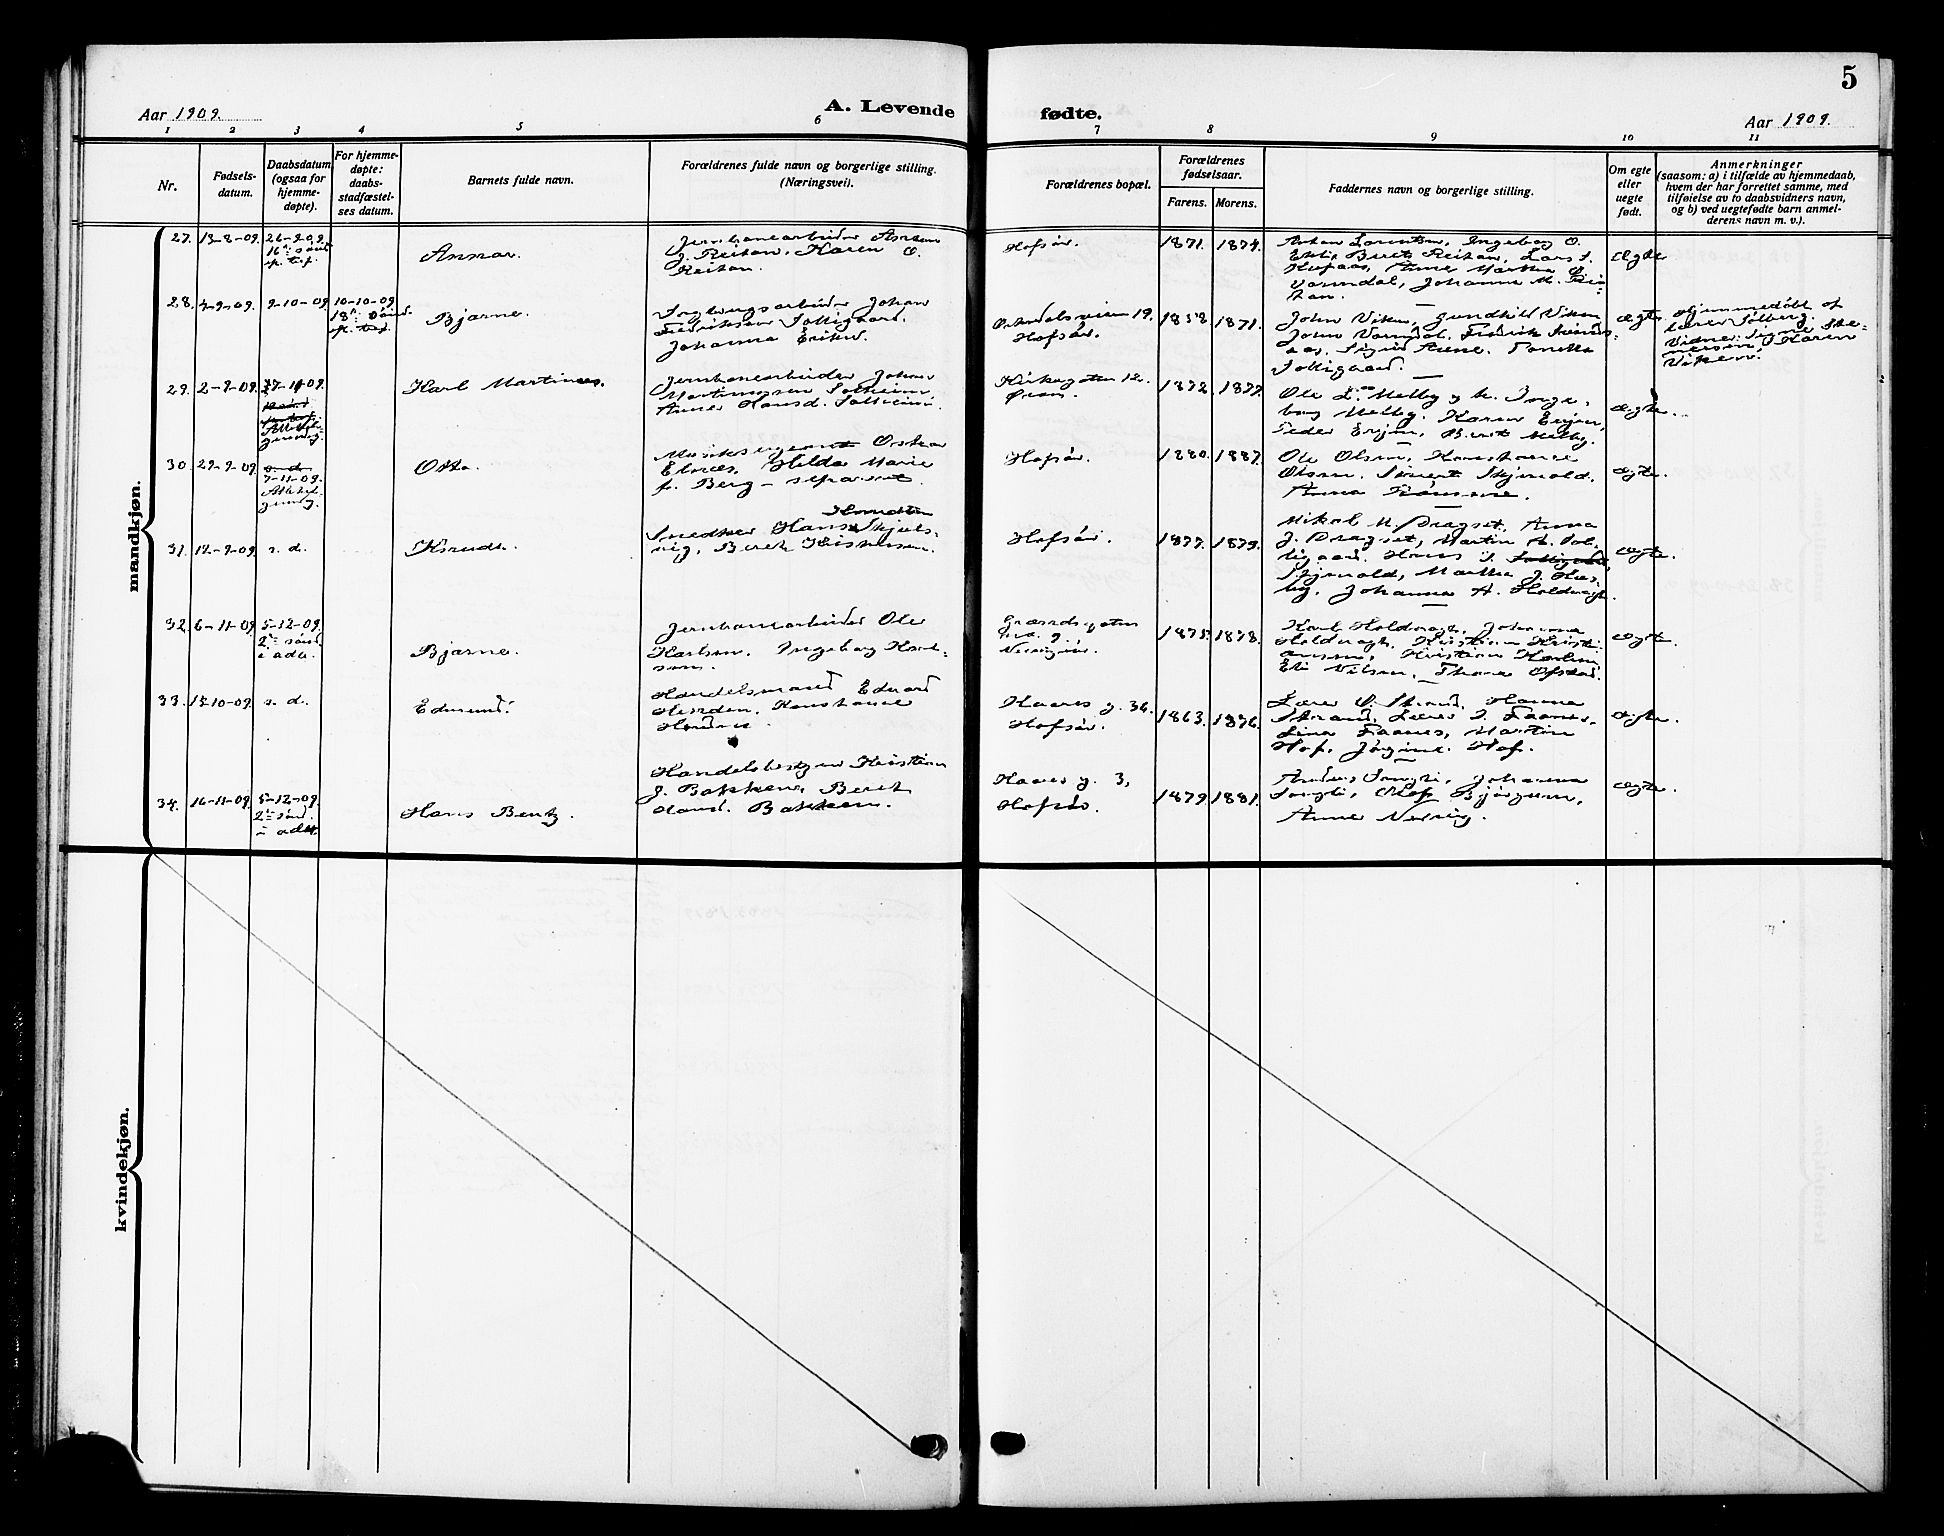 5
Aar 1909.
A. Levende
fødte.
Aar 1909.
1 2 3 4 5 6 7 8 9 10 11
Nr.
Fødsels-
datum.
Daabsdatum
(ogsaa for
hjemme-
døpte).
For hjemme-
døpte:
daabs-
stadfæstel-
ses datum.
Barnets fulde navn.
Forældrenes fulde navn og borgerlige stilling.
(Næringsvei).
Forældrenes bopæl.
Forældrenes
fødselsaar.
Farens. Morens.
Faddernes navn og borgerlige stilling.
Om egte
eller
uegte
født.
Anmerkninger
(saasom: a) i tilfælde av hjemmedaab,
hvem der har forrettet samme, med
tilføielse av to daabsvidners navn,
og b) ved uegtefødte barn anmel-
derens navn m. v.).
mandkjøn.
27. 13-8-09. 26-9-09.
16' sønd.
ep. tref.
Annar.
Jernbanearbeider
J. Reitan, Karen O.
Reitan.
Hofsør.
1871. 1874.
Anton Lorentsen, Ingeborg O.
Berit Reitan, Lars
Anne Martha O.
Johanna M. Rei-
tan.
Ægte
28. 9-10-09 10-10-09
18' sønd.
ep. tref.
Bjarne.
Johan
Fredriksen Solligaard.
Johanna Eriksd.
Orkedalsveien 19.
Hofsør.
1858 1871.
John Viken, Gundhild Viken
John Fredrik
Sigrid
Solligaard.
ægte.
Hjemmedøbt af
lærer Solberg.
Vidner: Signe Ste-
nersen, Karen
Viken.
29. 2-9-09. 7-11-09.
Karl Martinus.
Jernbanearbeider Johan
Martinussen Solheim,
Anne Hansd. Solheim.
Kirkegaten 12.
Øran.
1872. 1877.
Ole L. Melby og h. Inge-
borg Melby. Karen
Peder Berit Melby.
ægte.
30. 29-9-09. s. d.
7-11-09.
Otto.
Musiksergeant
Hilda Marie
f. Berg – separert
Hofsør.
1880. 1887.
Ole Olsen, Konstance
Olsen. Sivert Skjevold.
Anna
ægte.
31. 12-9-09. s. d.
Knut.
Snedker Hans Skjøls-
vig, Berit Kristensen.
Hofsør.
1877. 1879.
Mikal M. Dragset, Anna
J. Dragset, Martin A. Sol-
ligaard. Hans
Skjevold, Martha J.
Johanna A. Holdvagt.
ægte.
32. 6-11-09. 5-12-09.
2' sønd.
i adv.
Bjarne.
Jernbanearbeider Ole
Karlsen. Ingeborg Karl-
sen.
1875. 1878.
Karl Holdvagt, Johanna
Holdvagt, Kristian Kristi-
ansen, Kristian Karlsen,
Eli Nilsen, Thora Ofstad.
ægte.
33. 15-10-09. s. d.
Edmund.
Handelsmand Edvard
Konstance
Haares g. 34.
Hofsør.
1863. 1876.
Lærer O. Strand, Hanna
Strand. Lærer Faanes,
Lina Faanes, Martin
Hof, Jørgine Hof.
ægte.
34. 16-11-09. 5-12-09.
2' sønd.
i advt.
Hans Bentz.
Handelsbestyrer Kristian
J. Bakken, Berit
Hansd. Bakken.
Haares g. 3,
Hofsør.
1879. 1881.
Anders Songli, Johanna
Songli, Olaf Bjørgum,
Anne
ægte.
kvindekjøn.